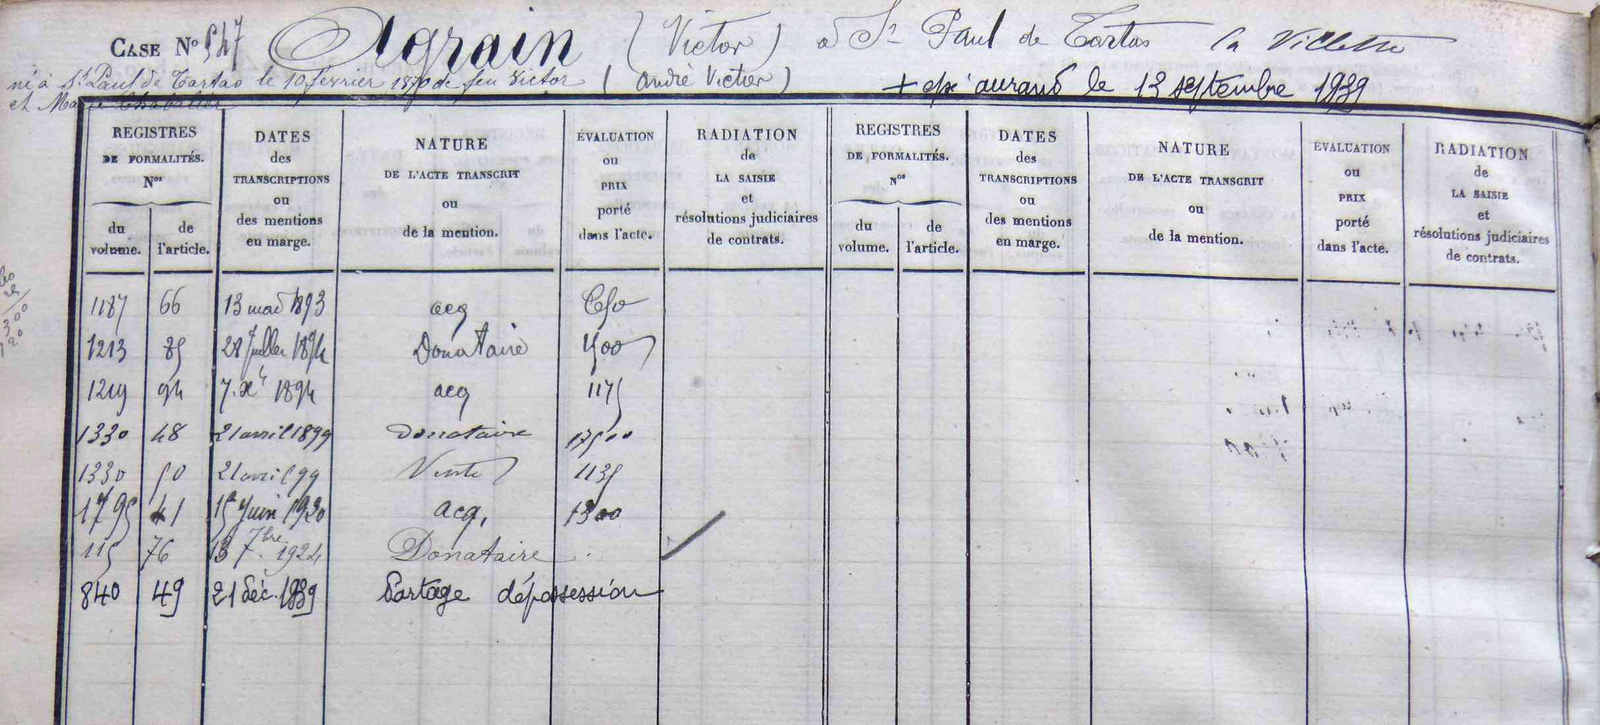 CASE No 547 Agrain (Victor) a St Paul de Tartas la Villette
né à St Paul de Tartas le 10 février 1870 de feu Victor (André Victor)
et Marie
+ ép. aurand le 13 septembre 1939
REGISTRES DE FORMALITÉS. Nos
du volume.
de l'article.
DATES des TRANSCRIPTIONS ou des mentions en marge.
NATURE DE L'ACTE TRANSCRIT ou de la mention.
ÉVALUATION ou PRIX porté dans l'acte.
RADIATION de LA SAISIE et résolutions judiciaires de contrats.
REGISTRES DE FORMALITÉS. Nos
du volume.
de l'article.
DATES des TRANSCRIPTIONS ou des mentions en marge.
NATURE DE L'ACTE TRANSCRIT ou de la mention.
ÉVALUATION ou PRIX porté dans l'acte.
RADIATION de LA SAISIE et résolutions judiciaires de contrats.
1187 66 13 mai 1893 acq 650
1213 85 28 Juillet 1894 Donataire 1500
1219 94 7. Xe 1894 acq 1175
1330 48 21 avril 1899 donataire 17500
1330 50 21 avril 99 Vente 1135
1795 41 15 Juin 1920 acq. 1300
115 76 13 7bre 1924 Donataire
840 49 21 Déc. 1939 Partage dépossession